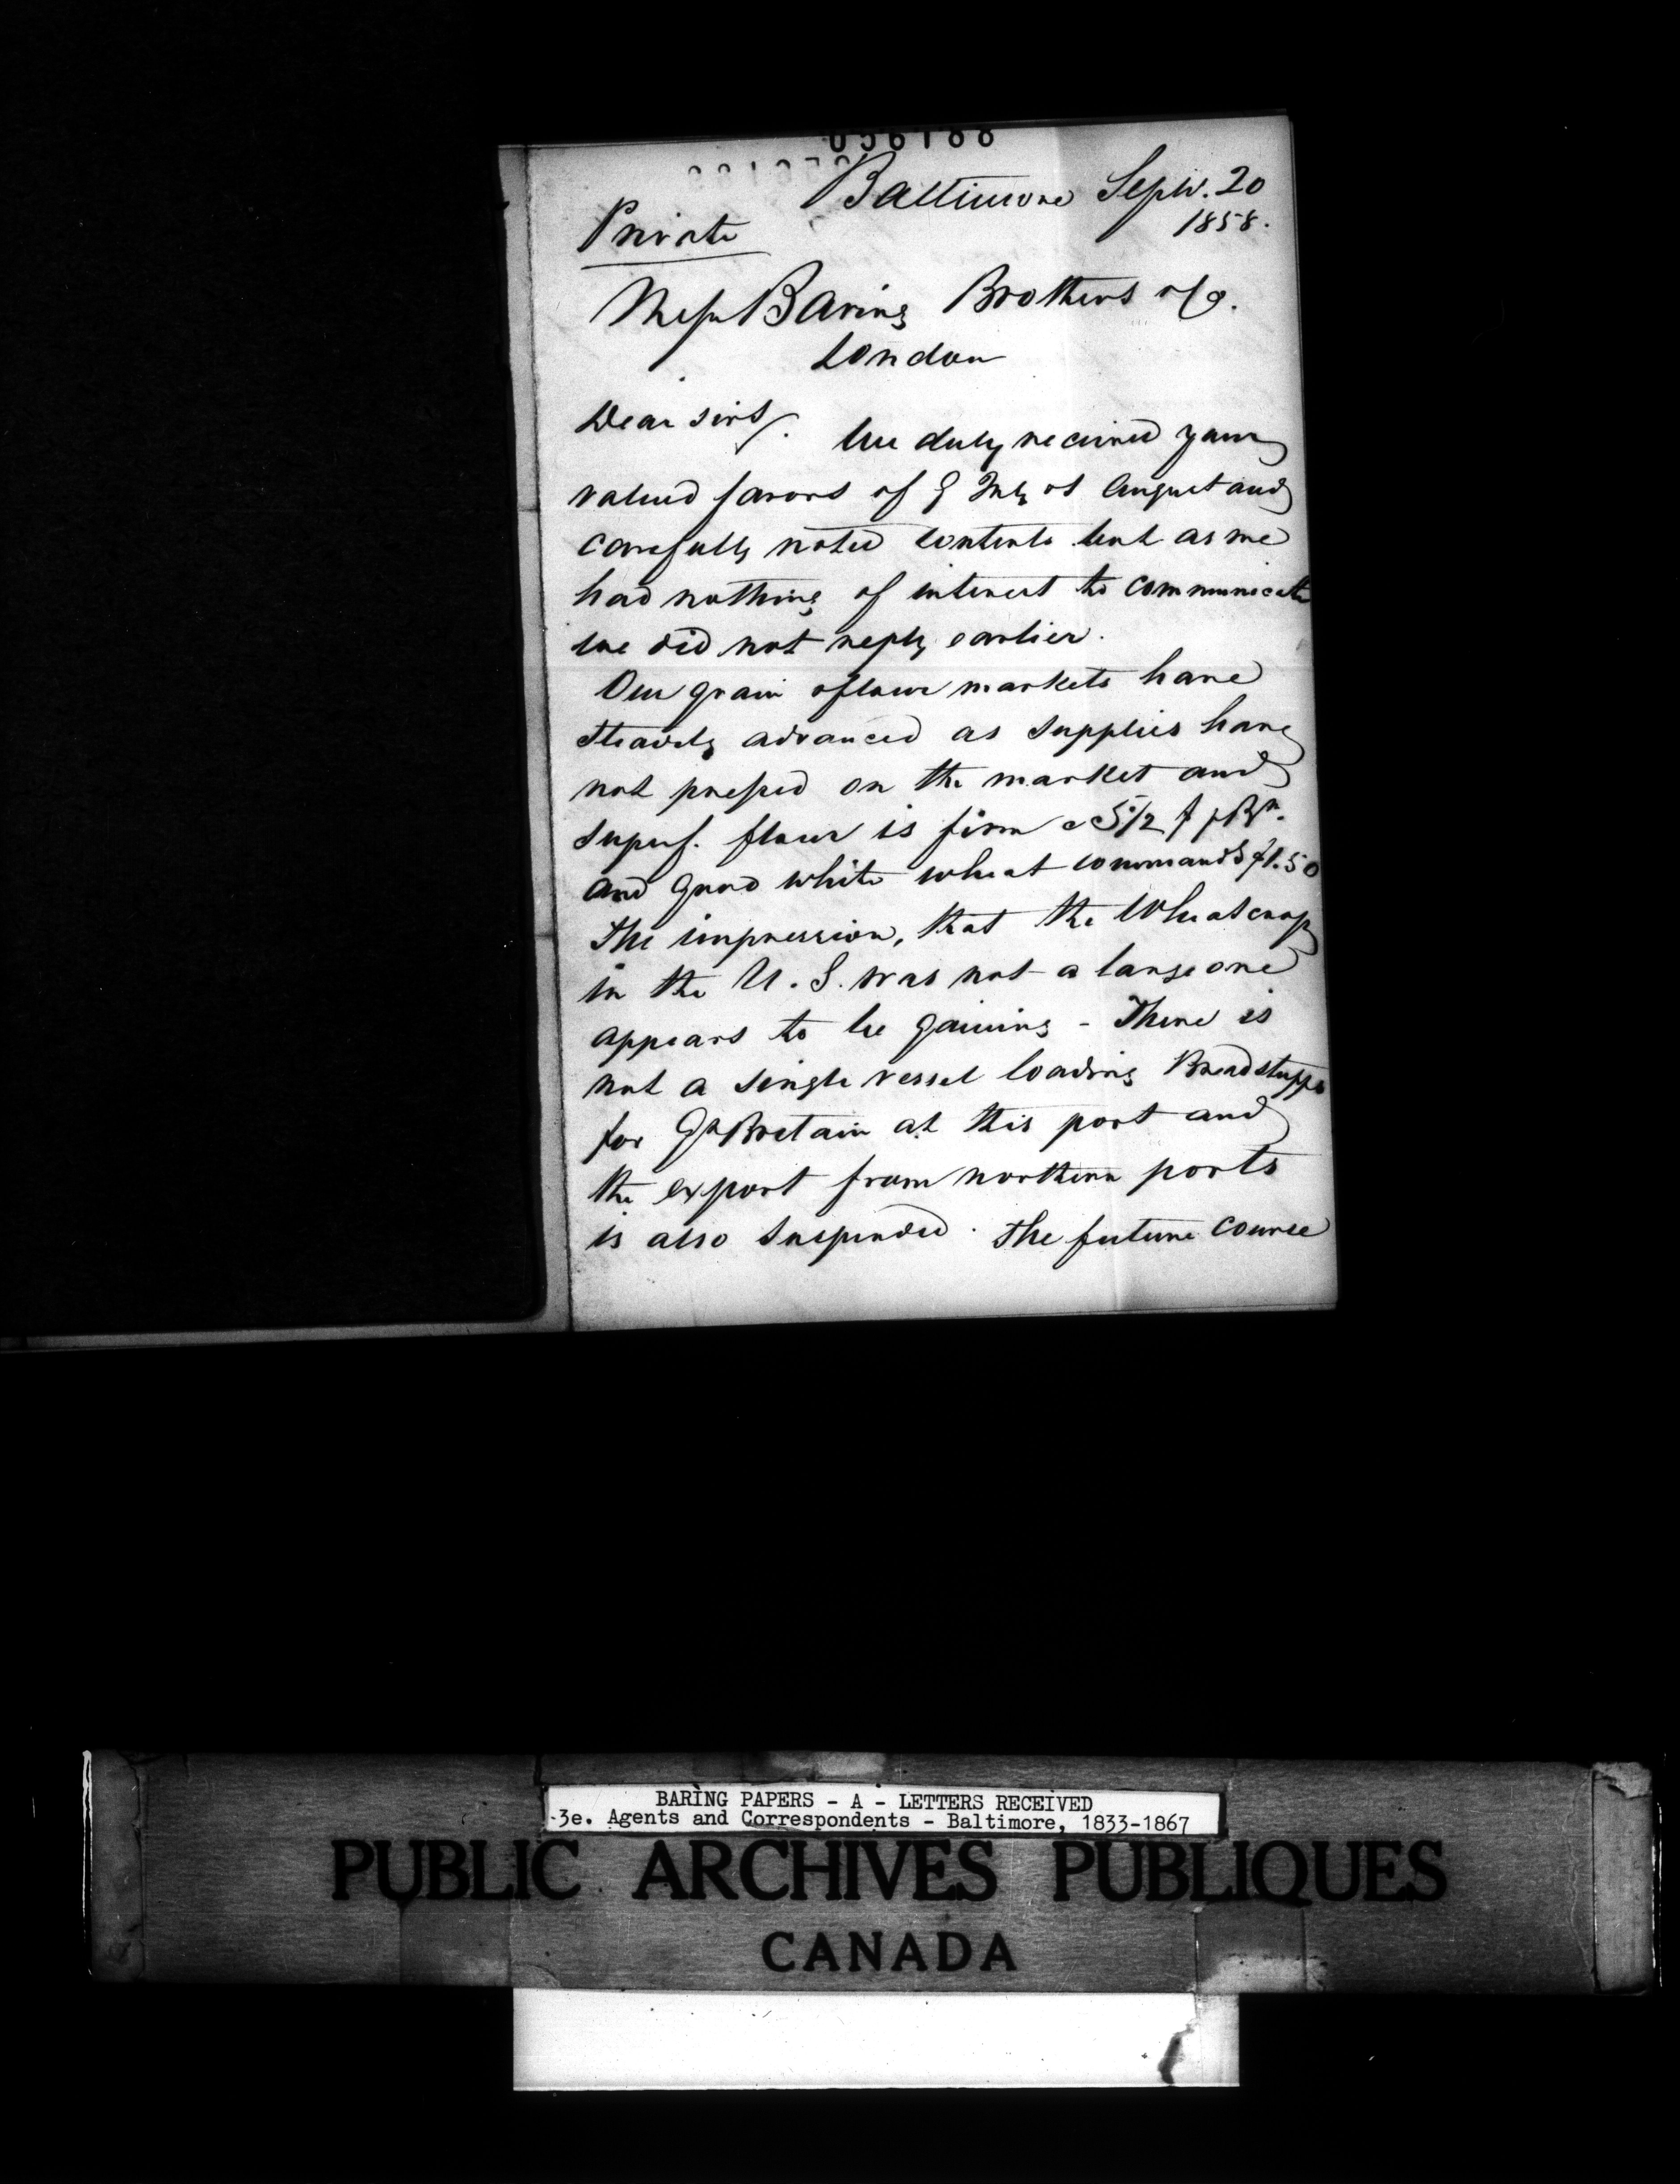 056188
Baltimore Septr. 20
1858.
Private
Messrs Baring Brothers & Co.
London
Dear Sirs, We duly received your
valued favors of 9 July & August and
carefully noted contents but as we
had nothing of interest to communicate
we did not reply earlier.
Our grain & flour markets have
steadily advanced as supplies have
not pressed on the market and
superf. flour is firm a 5 1/2 $ p Br.
and good white wheat commands $1.50
The impression, that the Wheat crop
in the U.S. was not a large one
appears to be gaining - There is
not a single vessel loading Breadstuffs
for Gt Bretain at this port and
the export from northern ports
is also suspended. The future course
BARING PAPERS - A - LETTERS RECEIVED
-3e. Agents and Correspondents - Baltimore, 1833-1867
PUBLIC ARCHIVES PUBLIQUES
CANADA